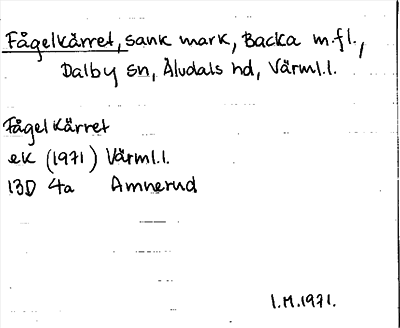 Fågelkärret, sank mark, Backa m.fl.,
Dalby sn, Älvdals hd, Värml.l.
Fågelkärret
ek (1971) Värml.l.
13D 4a Amnerud
I.M.1971.